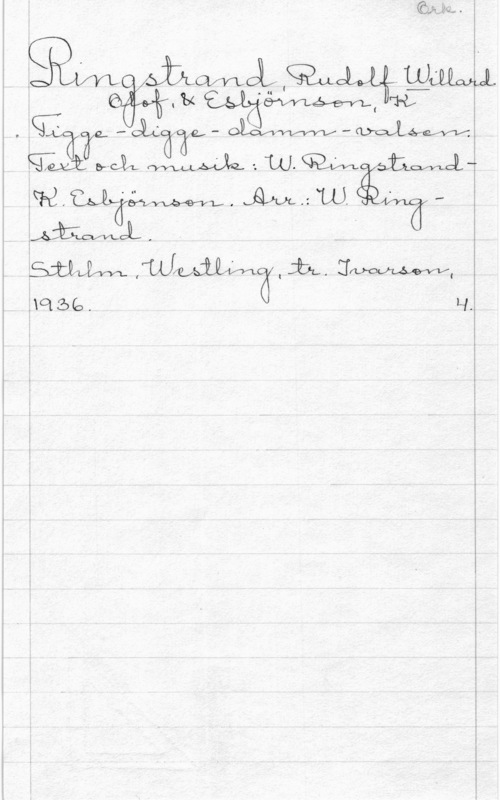 Ork.
Ringstrand, Rudolf Willard
Olof, & Esbjörnson, K
Tigge-digge-damm-valsen.
Text och musik: W. Ringstrand-
K. Esbjörnson. Arr.: W. Ring-
strand.
Sthlm, Westling, tr. Ivarson,
1936. 4.